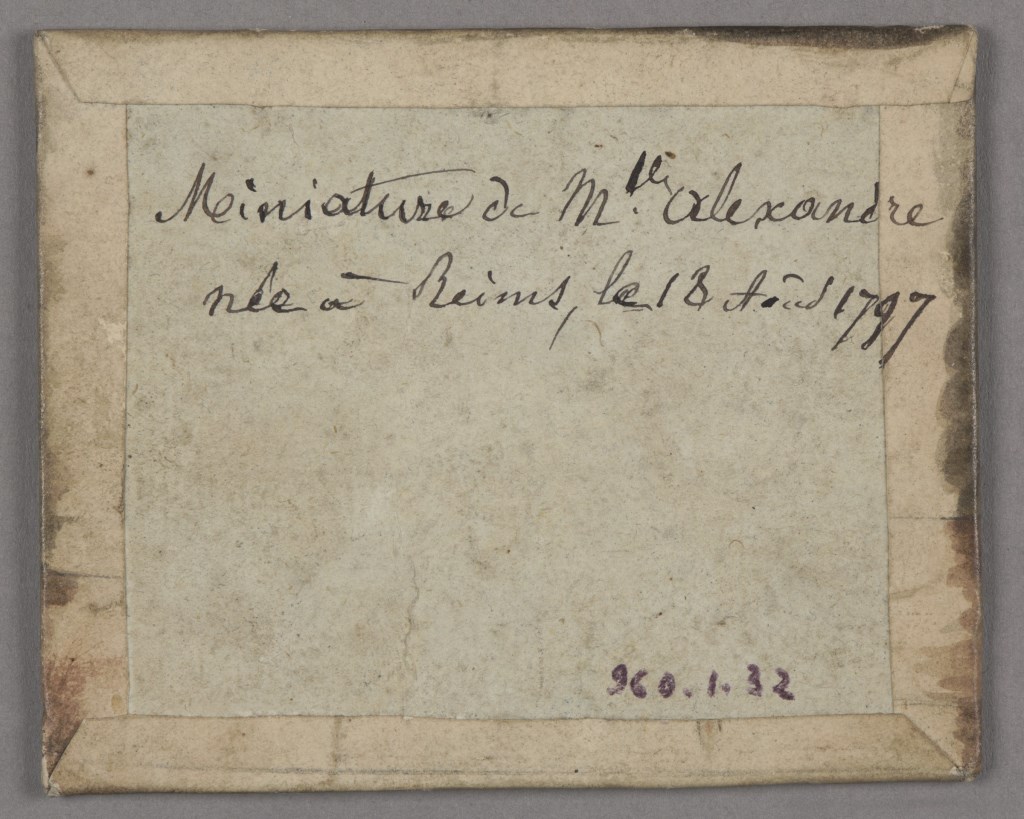 Miniature de M.lle Alexandre
née à Reims, le 13 Août 1797
960.1.32